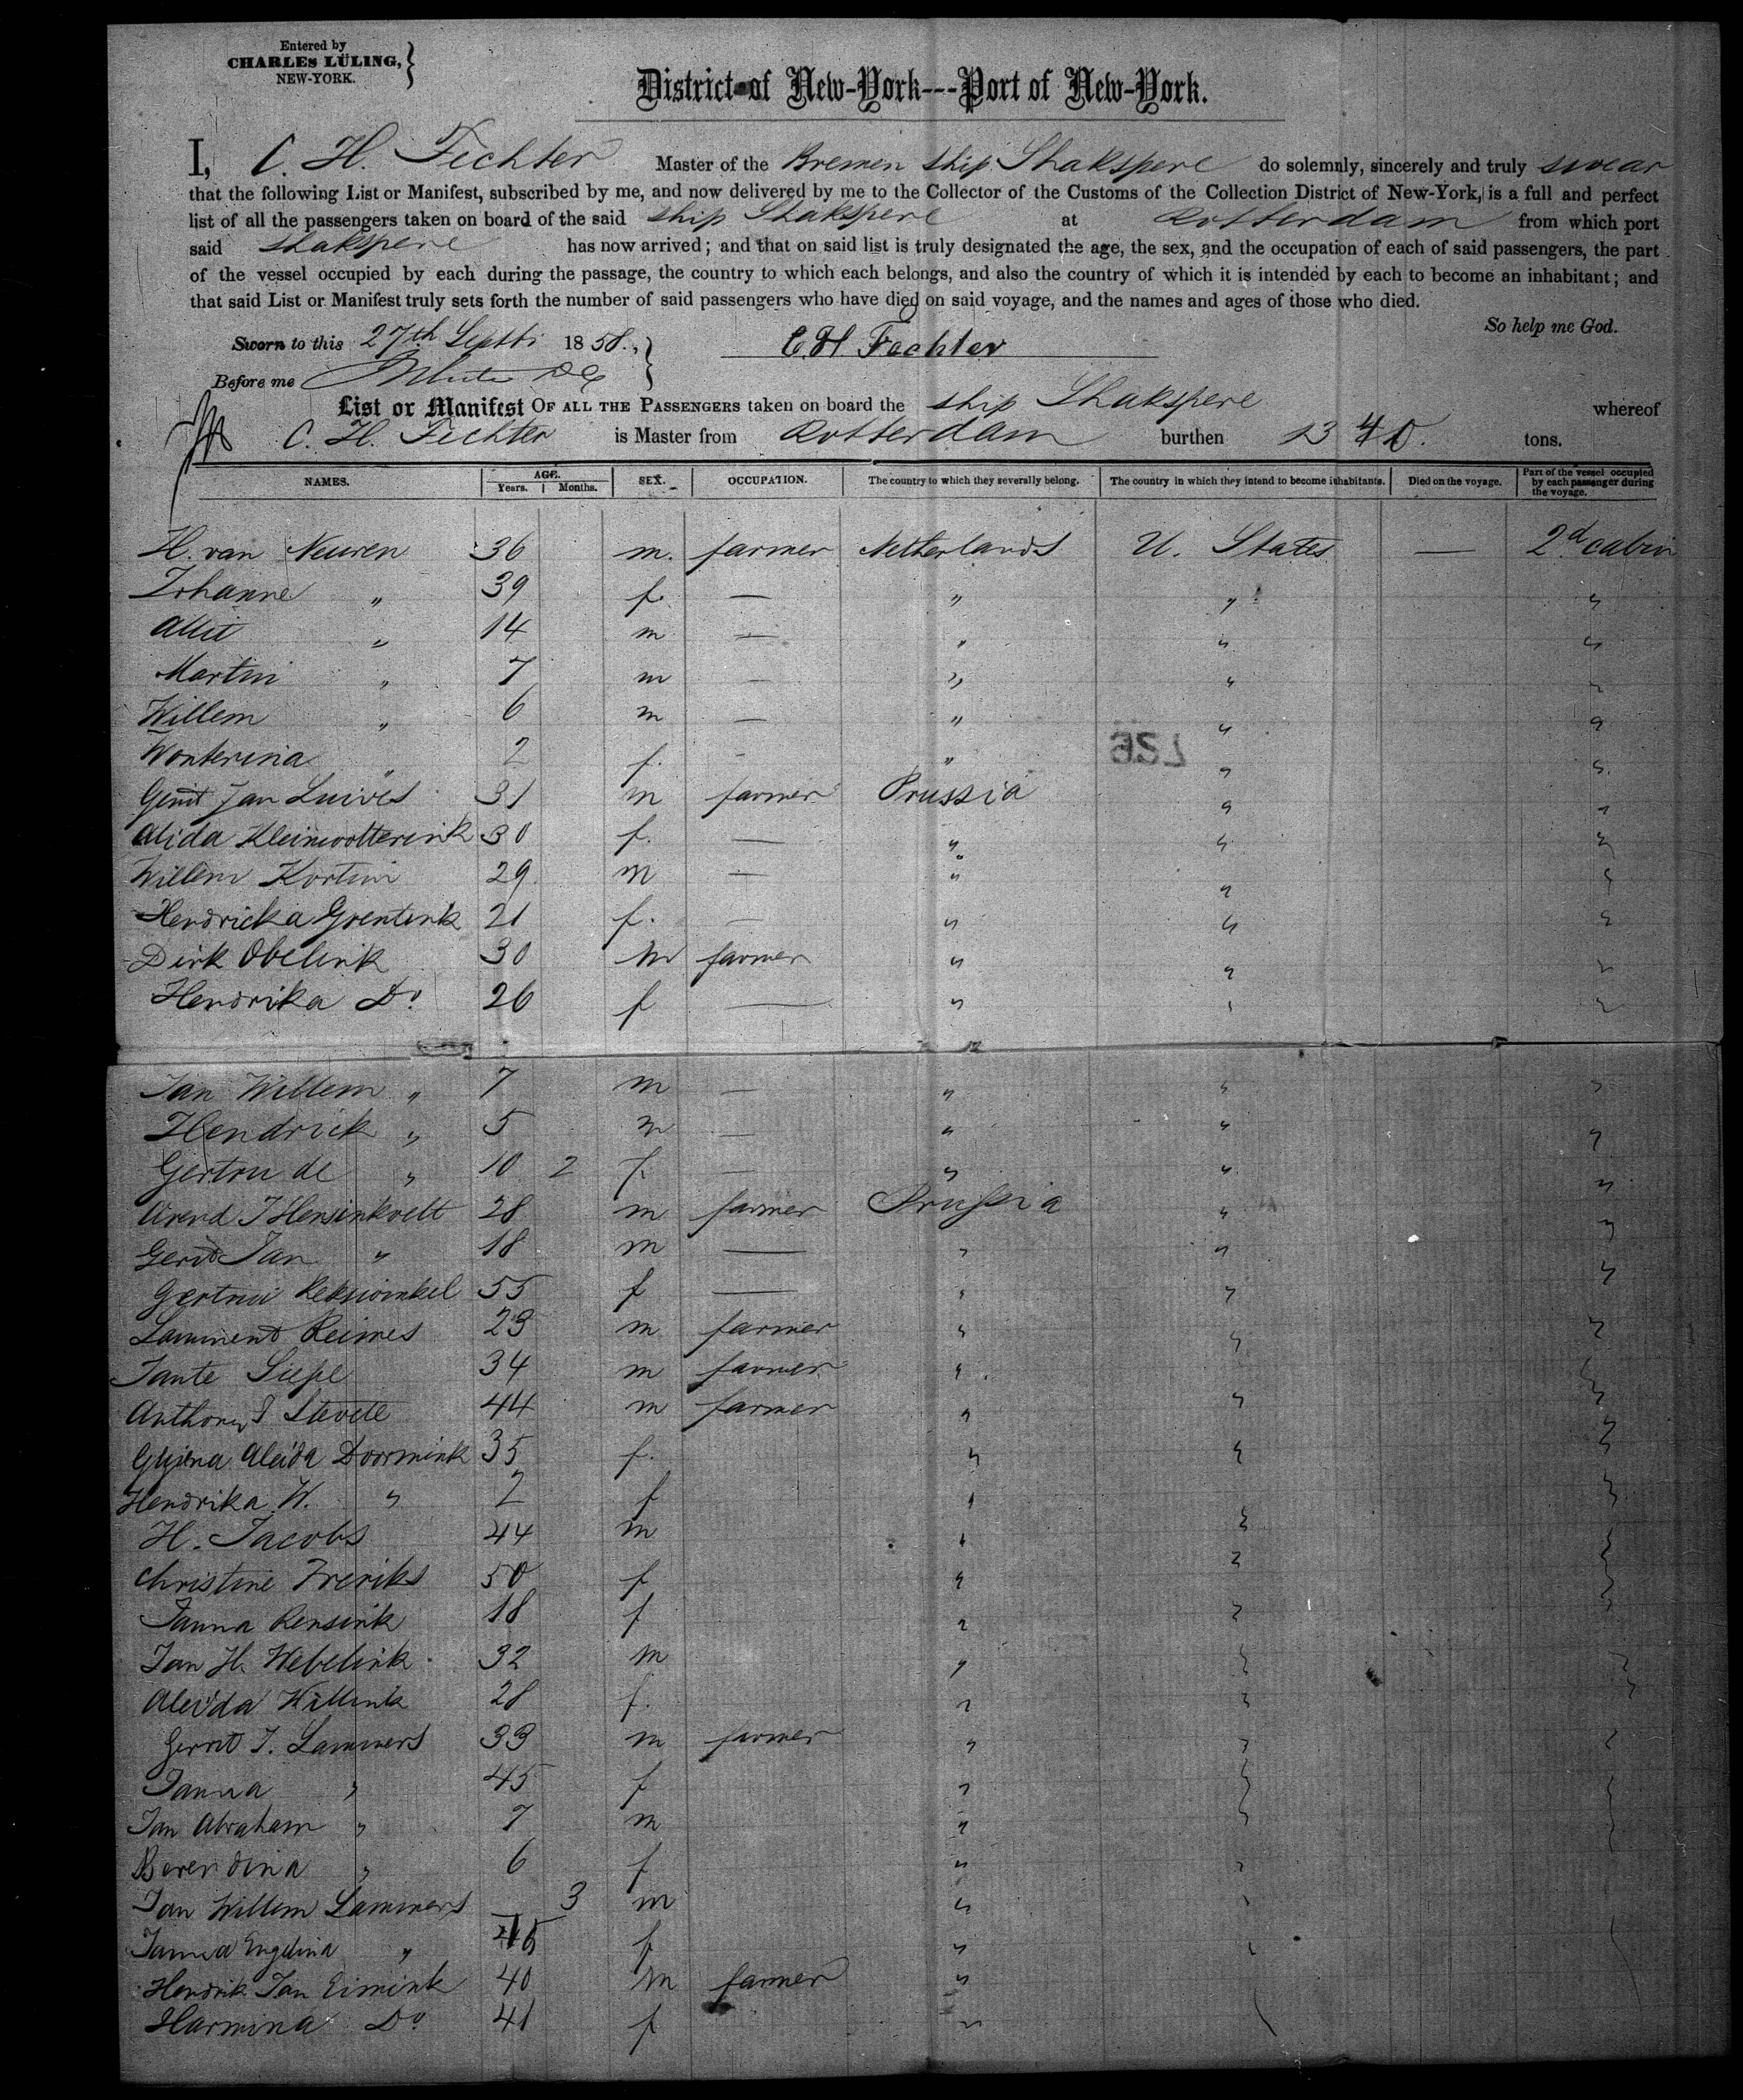 Entered by
CHARLES LÜLING,
NEW-YORK.
District of New-York---Port of New-York.
I, C. H. Fechter Master of the Bremen ship Shakspere do solemnly, sincerely and truly swear
that the following List or Manifest, subscribed by me, and now delivered by me to the Collector of the Customs of the Collection District of New-York, is a full and perfect
list of all the passengers taken on board of the said ship Shakspere at Rotterdam from which port
said Shakspere has now arrived; and that on said list is truly designated the age, the sex, and the occupation of each of said passengers, the part
of the vessel occupied by each during the passage, the country to which each belongs, and also the country of which it is intended by each to become an inhabitant; and
that said List or Manifest truly sets forth the number of said passengers who have died on said voyage, and the names and ages of those who died.
So help me God.
Sworn to this 27th Septbr 1858.,
C. H. Fechter
Before me
List or Manifest OF ALL THE PASSENGERS taken on board the ship Shakspere whereof
C. H. Fechter is Master from Rotterdam burthen 1340. tons.
NAMES. AGE. Years. Months. SEX. OCCUPATION. The country to which they severally belong. The country in which they intend to become inhabitants. Died on the voyage. Part of the vessel occupied by each passenger during the voyage.
H. van Neuren 36 m. farmer Netherlands U. States — 2d cabin
Johanne " 39 f. — " " "
" 14 m — " " "
Martin " 7 m — " " "
Willem " 6 m — " " "
Wonterina " 2 f. - " " "
Gerrit Jan Luives 31 m farmer Prussia " "
Alida Kleinwotterink 30 f. — " " "
Willem Kortini 29 m — " " "
Hendricka Grentink 21 f. — " " "
Dirk Obelink 30 m farmer " " "
Hendrika Do 26 f — " " "
Jan Willem " 7 m — " " "
Hendrick " 5 m — " " "
Gertrude " 10 2 f. — " " "
Arend J Hensinkvelt 28 m farmer Prussia " "
Gerrit Jan " 18 m — " " "
Gertrui Rekwinkel 55 f — " " "
Lammert Reimes 23 m farmer " " "
Jante Siepe 34 m farmer " "
Anthony J Stevete 44 m farmer " " "
Aleida Doormink 35 f. " " "
Hendrika W. " 2 f " "
H. Jacobs 44 m " " "
Christine Freriks 50 f " " "
Janna Rensink 18 f " " "
Jan H. Webelink 32 m " " "
Aleida Willink 28 f. " " "
Gerrit J. Lammers 33 m farmer " " "
Janna " 45 f " " "
Jan Abraham " 7 m " " "
Berendina " 6 f " "
Jan Willem Lammers 3 m " "
Janna Engelina " f " "
Hendrik Jan Eimink 40 m farmer "
Harmina Do 41 f "